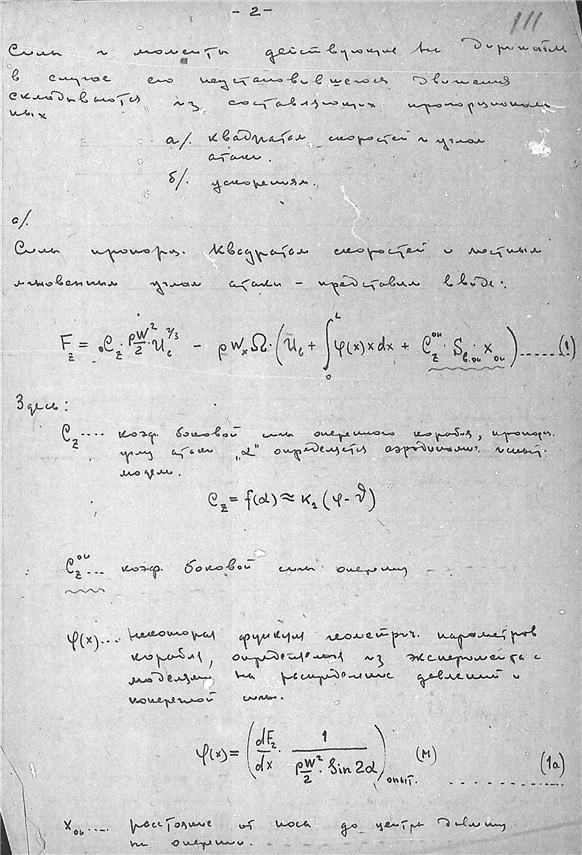 - 2 -
111
Силы и моменты действующие на дирижабль
в случае его неустановившегося движения
складываются из составляющих пропорционал
ных
а/. квадратам скоростей и углам
атаки.
б/. ускорениям.
а/.
Силы пропорц. квадратам скоростей и местным
мгновенным углам атаки - представим в виде:
F_z = C_z · ρW²/2 · U_в^(2/3) - ρ W_x Ω · (U_в + ∫₀ᴸ φ(x) x dx + C_z^оп · S_в.оп · x_оп) ...... (1)
Здесь:
C_z .... коэф. боковой силы оперенного корабля, пропорц.
углу атаки "α" определяется аэродинам. испыт.
модели.
C_z = f(α) ≈ K₁ (φ - ϑ)
C_z^оп ... коэф. боковой силы оперения
φ(x) ... некоторая функция геометрич. параметров
корабля, определяемая из эксперимента с
моделями на распределение давлений и
поперечной силы.
φ(x) = (dF_z/dx · 1/(ρW²/2 · Sin 2α))_опыт. (М) .......... (1а)
x_оп .... расстояние от носа до центра давлен.
на оперении.